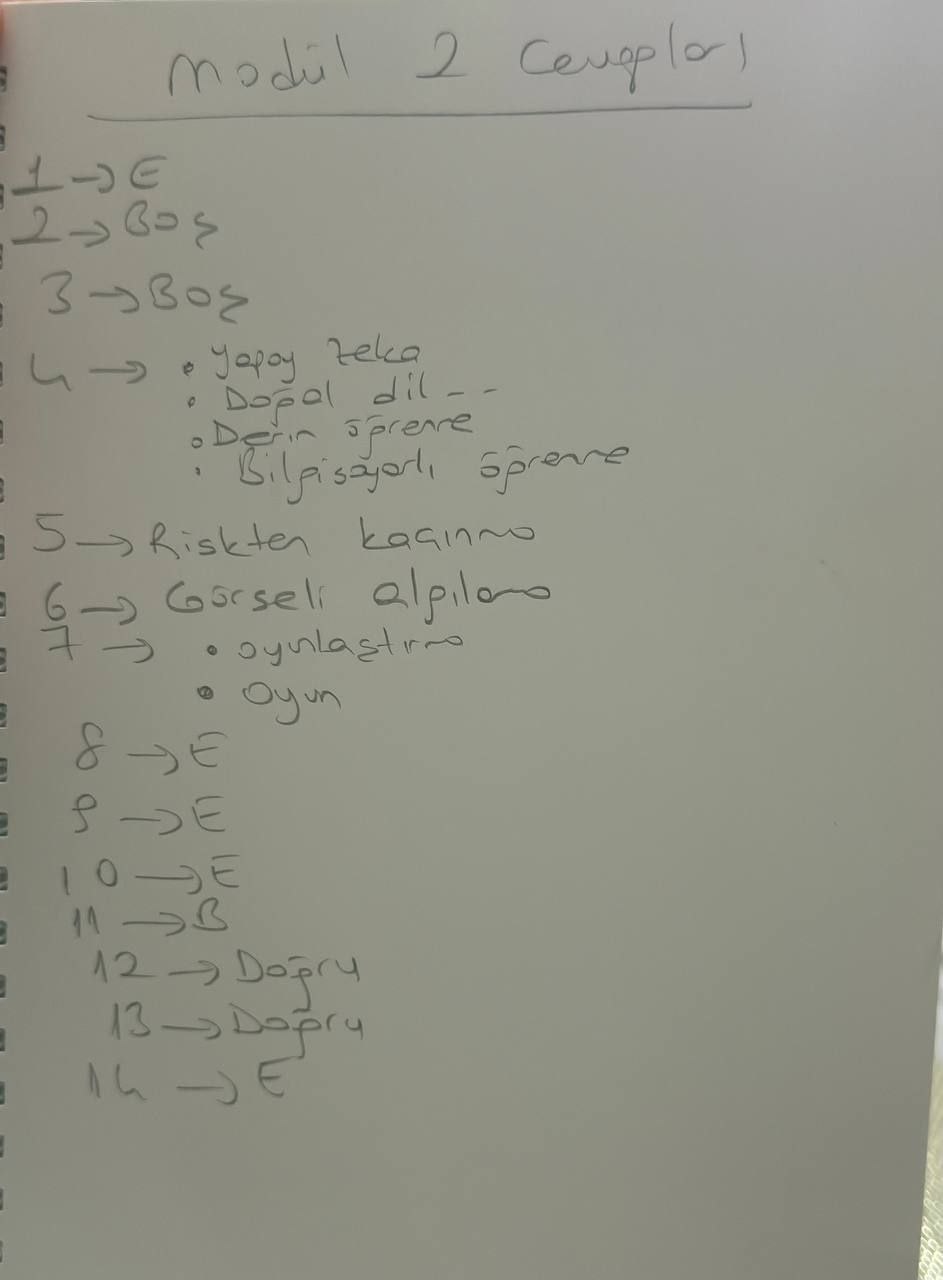 Modül 2 Cevapları
1 → E
2 → Boş
3 → Boş
4 → • Yapay zeka
• Doğal dil --
• Derin öğrenme
• Bilgisayarlı öğrenme
5 → Riskten kaçınma
6 → Görseli algılama
7 → • oyunlaştırma
• Oyun
8 → E
9 → E
10 → E
11 → B
12 → Doğru
13 → Doğru
14 → E